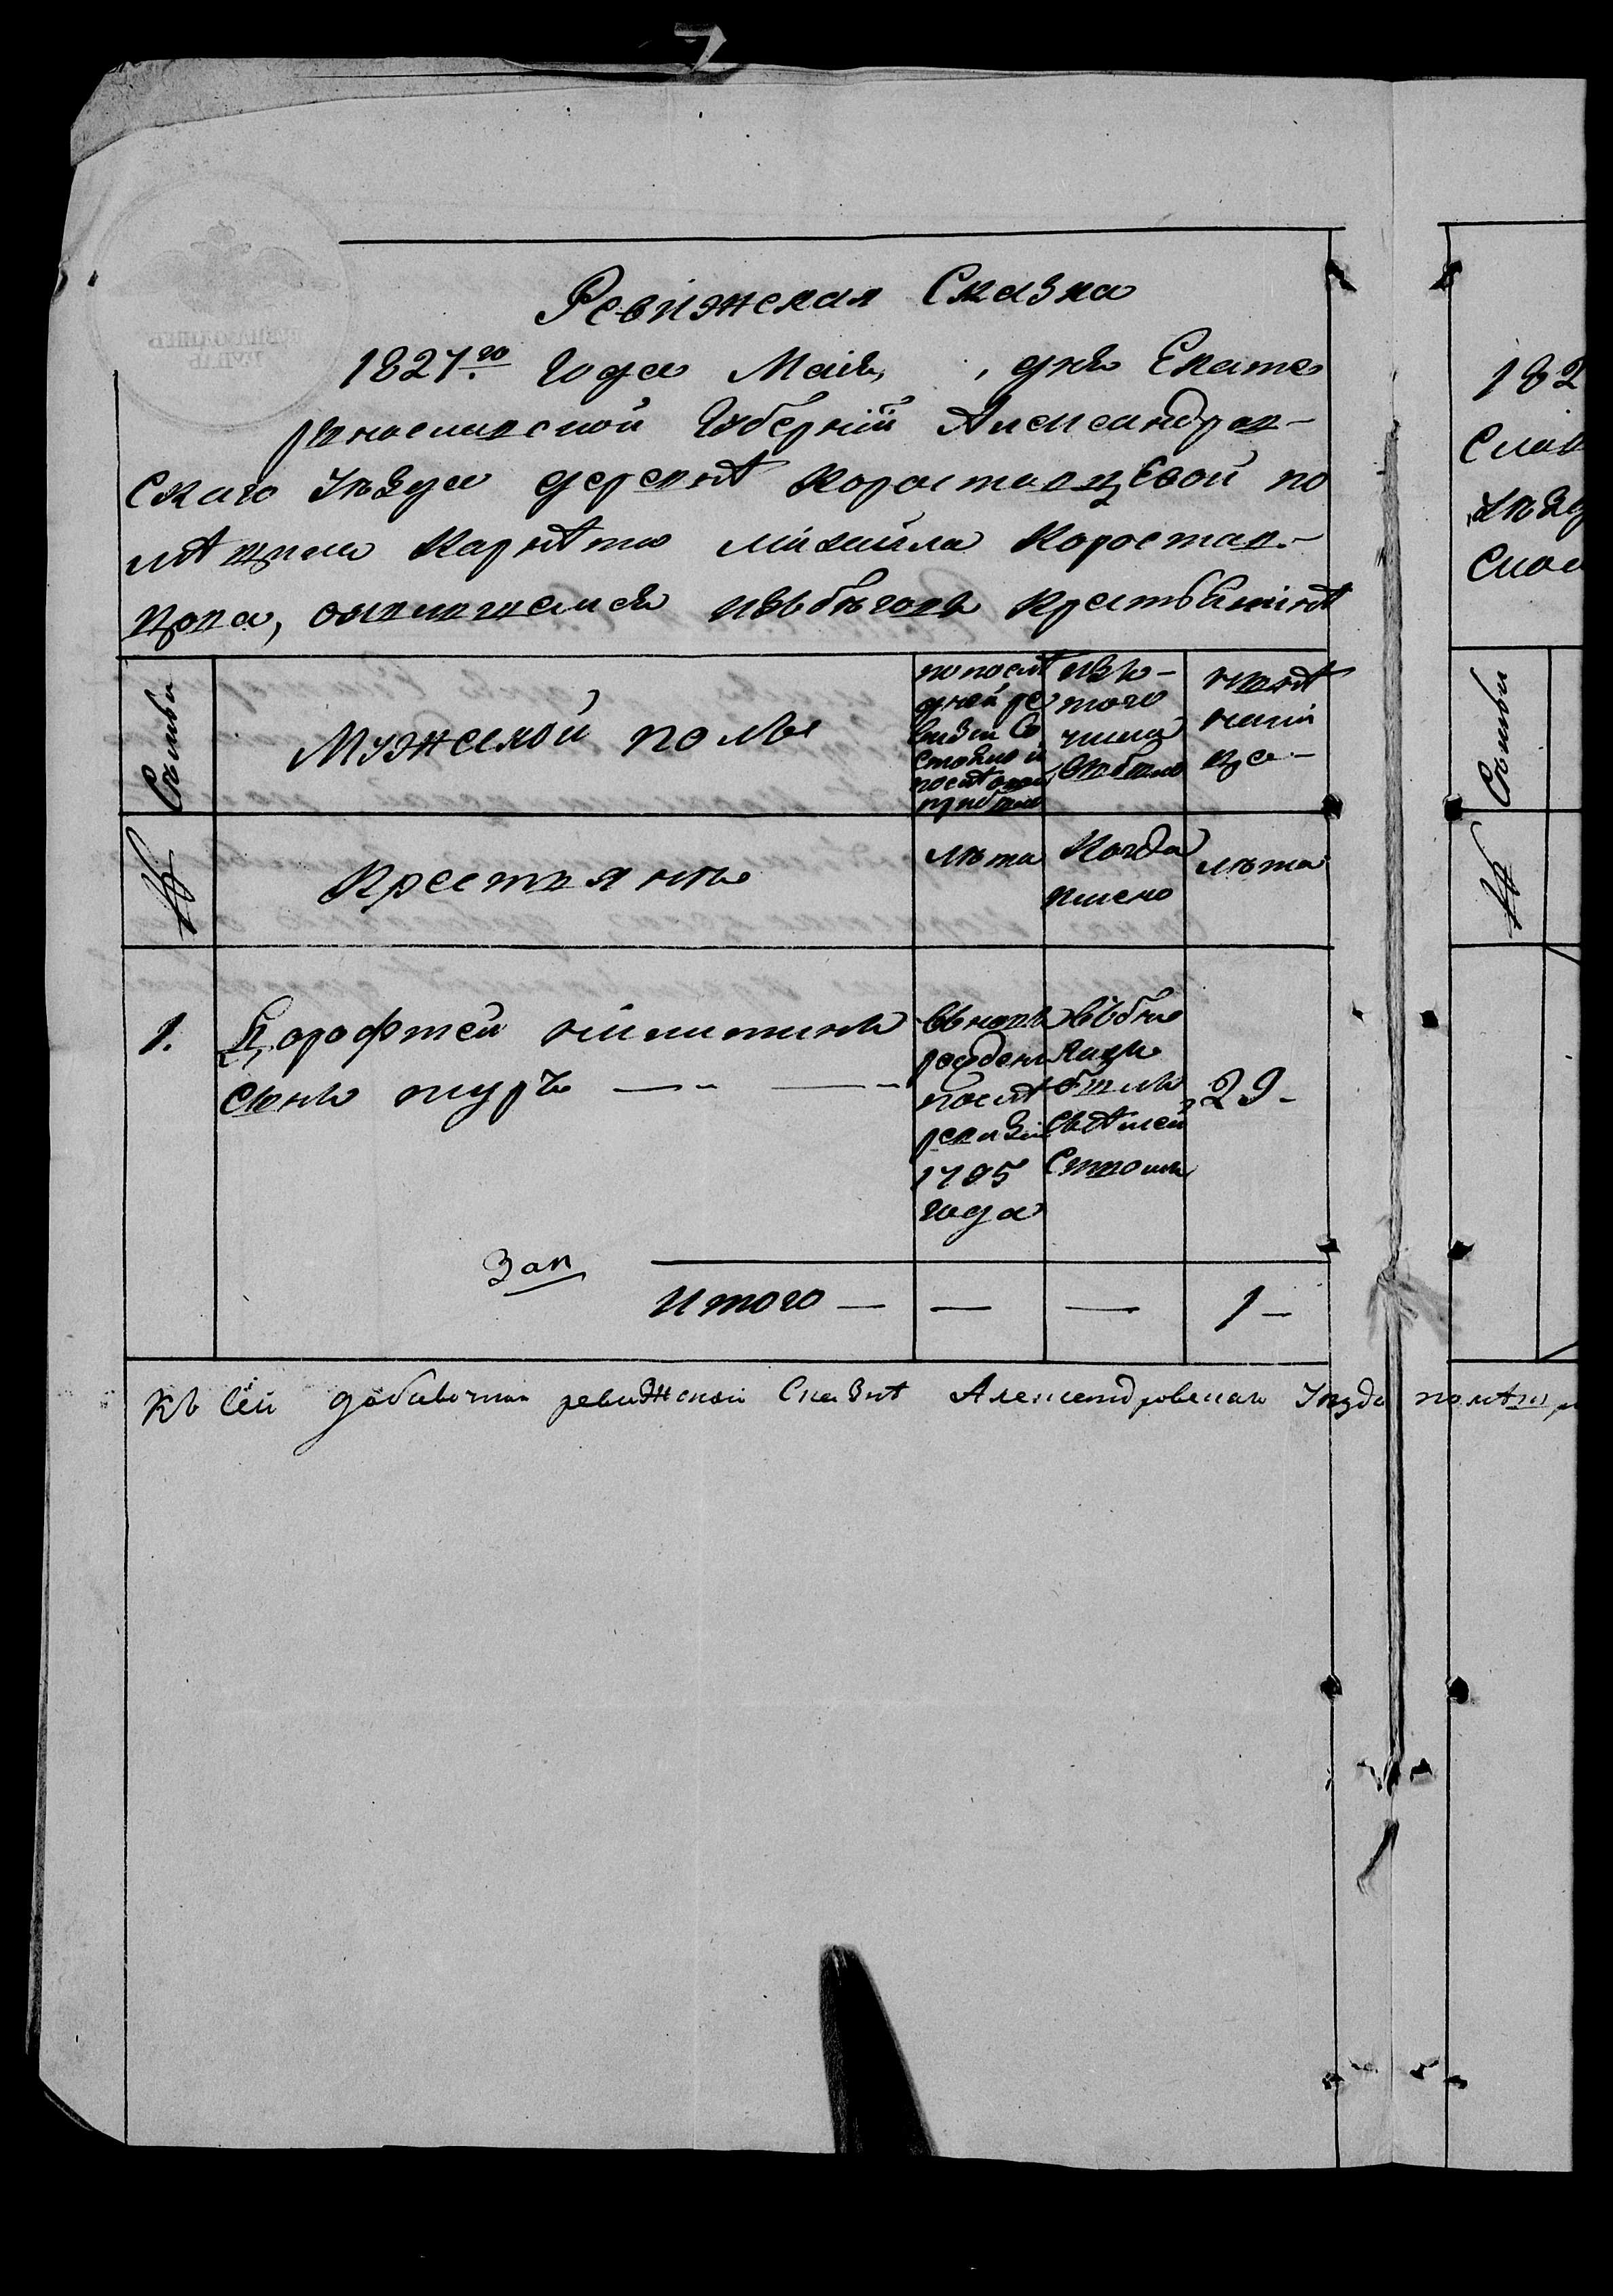 Ревижская Сказка
1827.го Года Маія, дня Екате
ринославской Губерніи Александров-
скаго уѣзда деревнѣ Коростовцевой по
мѣщика Карнѣта михаила Коростов-
цова, изъ бѣговъ Крестьянинѣ
Семьи
Мужеской полъ
по послѣ
дней ре
визіи Со
стояло и
послѣ оной
прибыло
изъ-
того
числа
выбыло
нынѣ
на ли
це-
№
Крестьяне
лѣта
Когда
имено
лѣта
1.
Дорофтей никитинъ
сынъ
послѣ
ревизіи
1795
года
29-
Итого — — — 1-
Къ сей добавочной ревижской Сказкѣ Александровскаго уѣзда помѣщи
182
Слав
уѣзд
Скол
Семьи
№